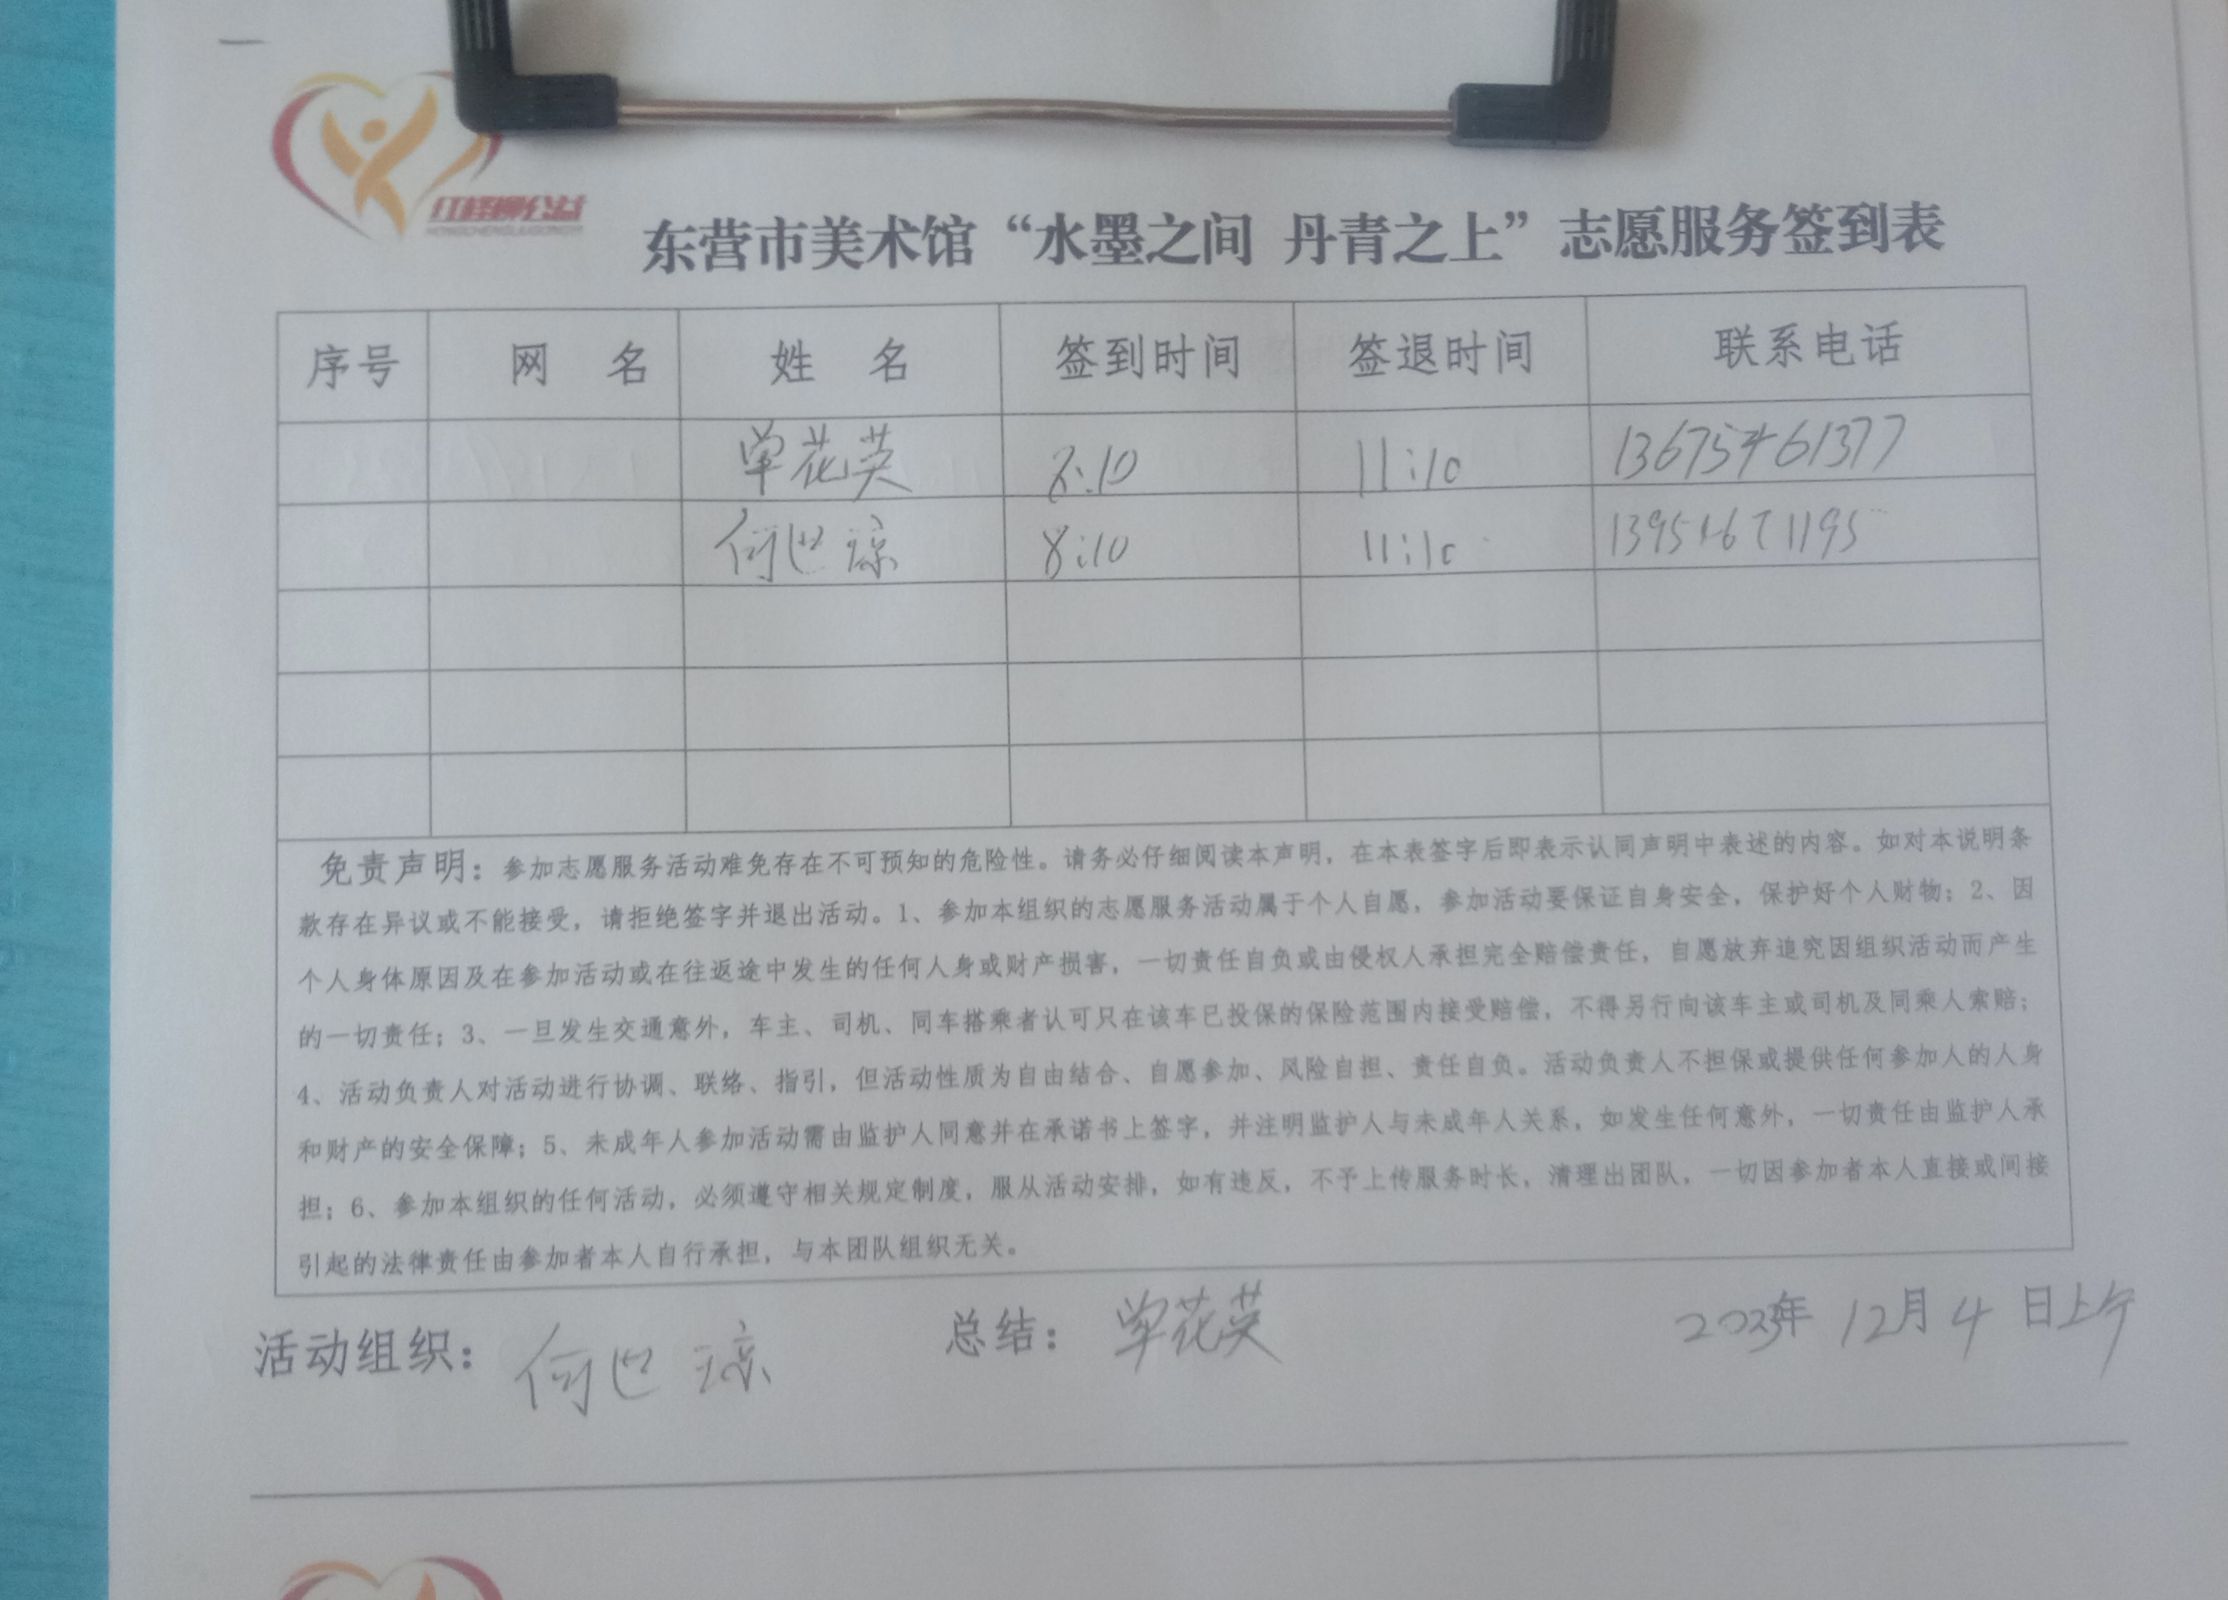 红柽柳公益
HONGCHENGLIUGONGYI
东营市美术馆“水墨之间 丹青之上”志愿服务签到表
序号 网 名 姓 名 签到时间 签退时间 联系电话
单花英 8:10 11:10 13675461377
何世琼 8:10 11:10
免责声明：参加志愿服务活动难免存在不可预知的危险性。请务必仔细阅读本声明，在本表签字后即表示认同声明中表述的内容。如对本说明条
款存在异议或不能接受，请拒绝签字并退出活动。1、参加本组织的志愿服务活动属于个人自愿，参加活动要保证自身安全，保护好个人财物；2、因
个人身体原因及在参加活动或在往返途中发生的任何人身或财产损害，一切责任自负或由侵权人承担完全赔偿责任，自愿放弃追究因组织活动而产生
的一切责任；3、一旦发生交通意外，车主、司机、同车搭乘者认可只在该车已投保的保险范围内接受赔偿，不得另行向该车主或司机及同乘人索赔；
4、活动负责人对活动进行协调、联络、指引，但活动性质为自由结合、自愿参加、风险自担、责任自负。活动负责人不担保或提供任何参加人的人身
和财产的安全保障；5、未成年人参加活动需由监护人同意并在承诺书上签字，并注明监护人与未成年人关系，如发生任何意外，一切责任由监护人承
担；6、参加本组织的任何活动，必须遵守相关规定制度，服从活动安排，如有违反，不予上传服务时长，清理出团队，一切因参加者本人直接或间接
引起的法律责任由参加者本人自行承担，与本团队组织无关。
活动组织：何世琼 总结：单花英 2023年 12月 4 日上午